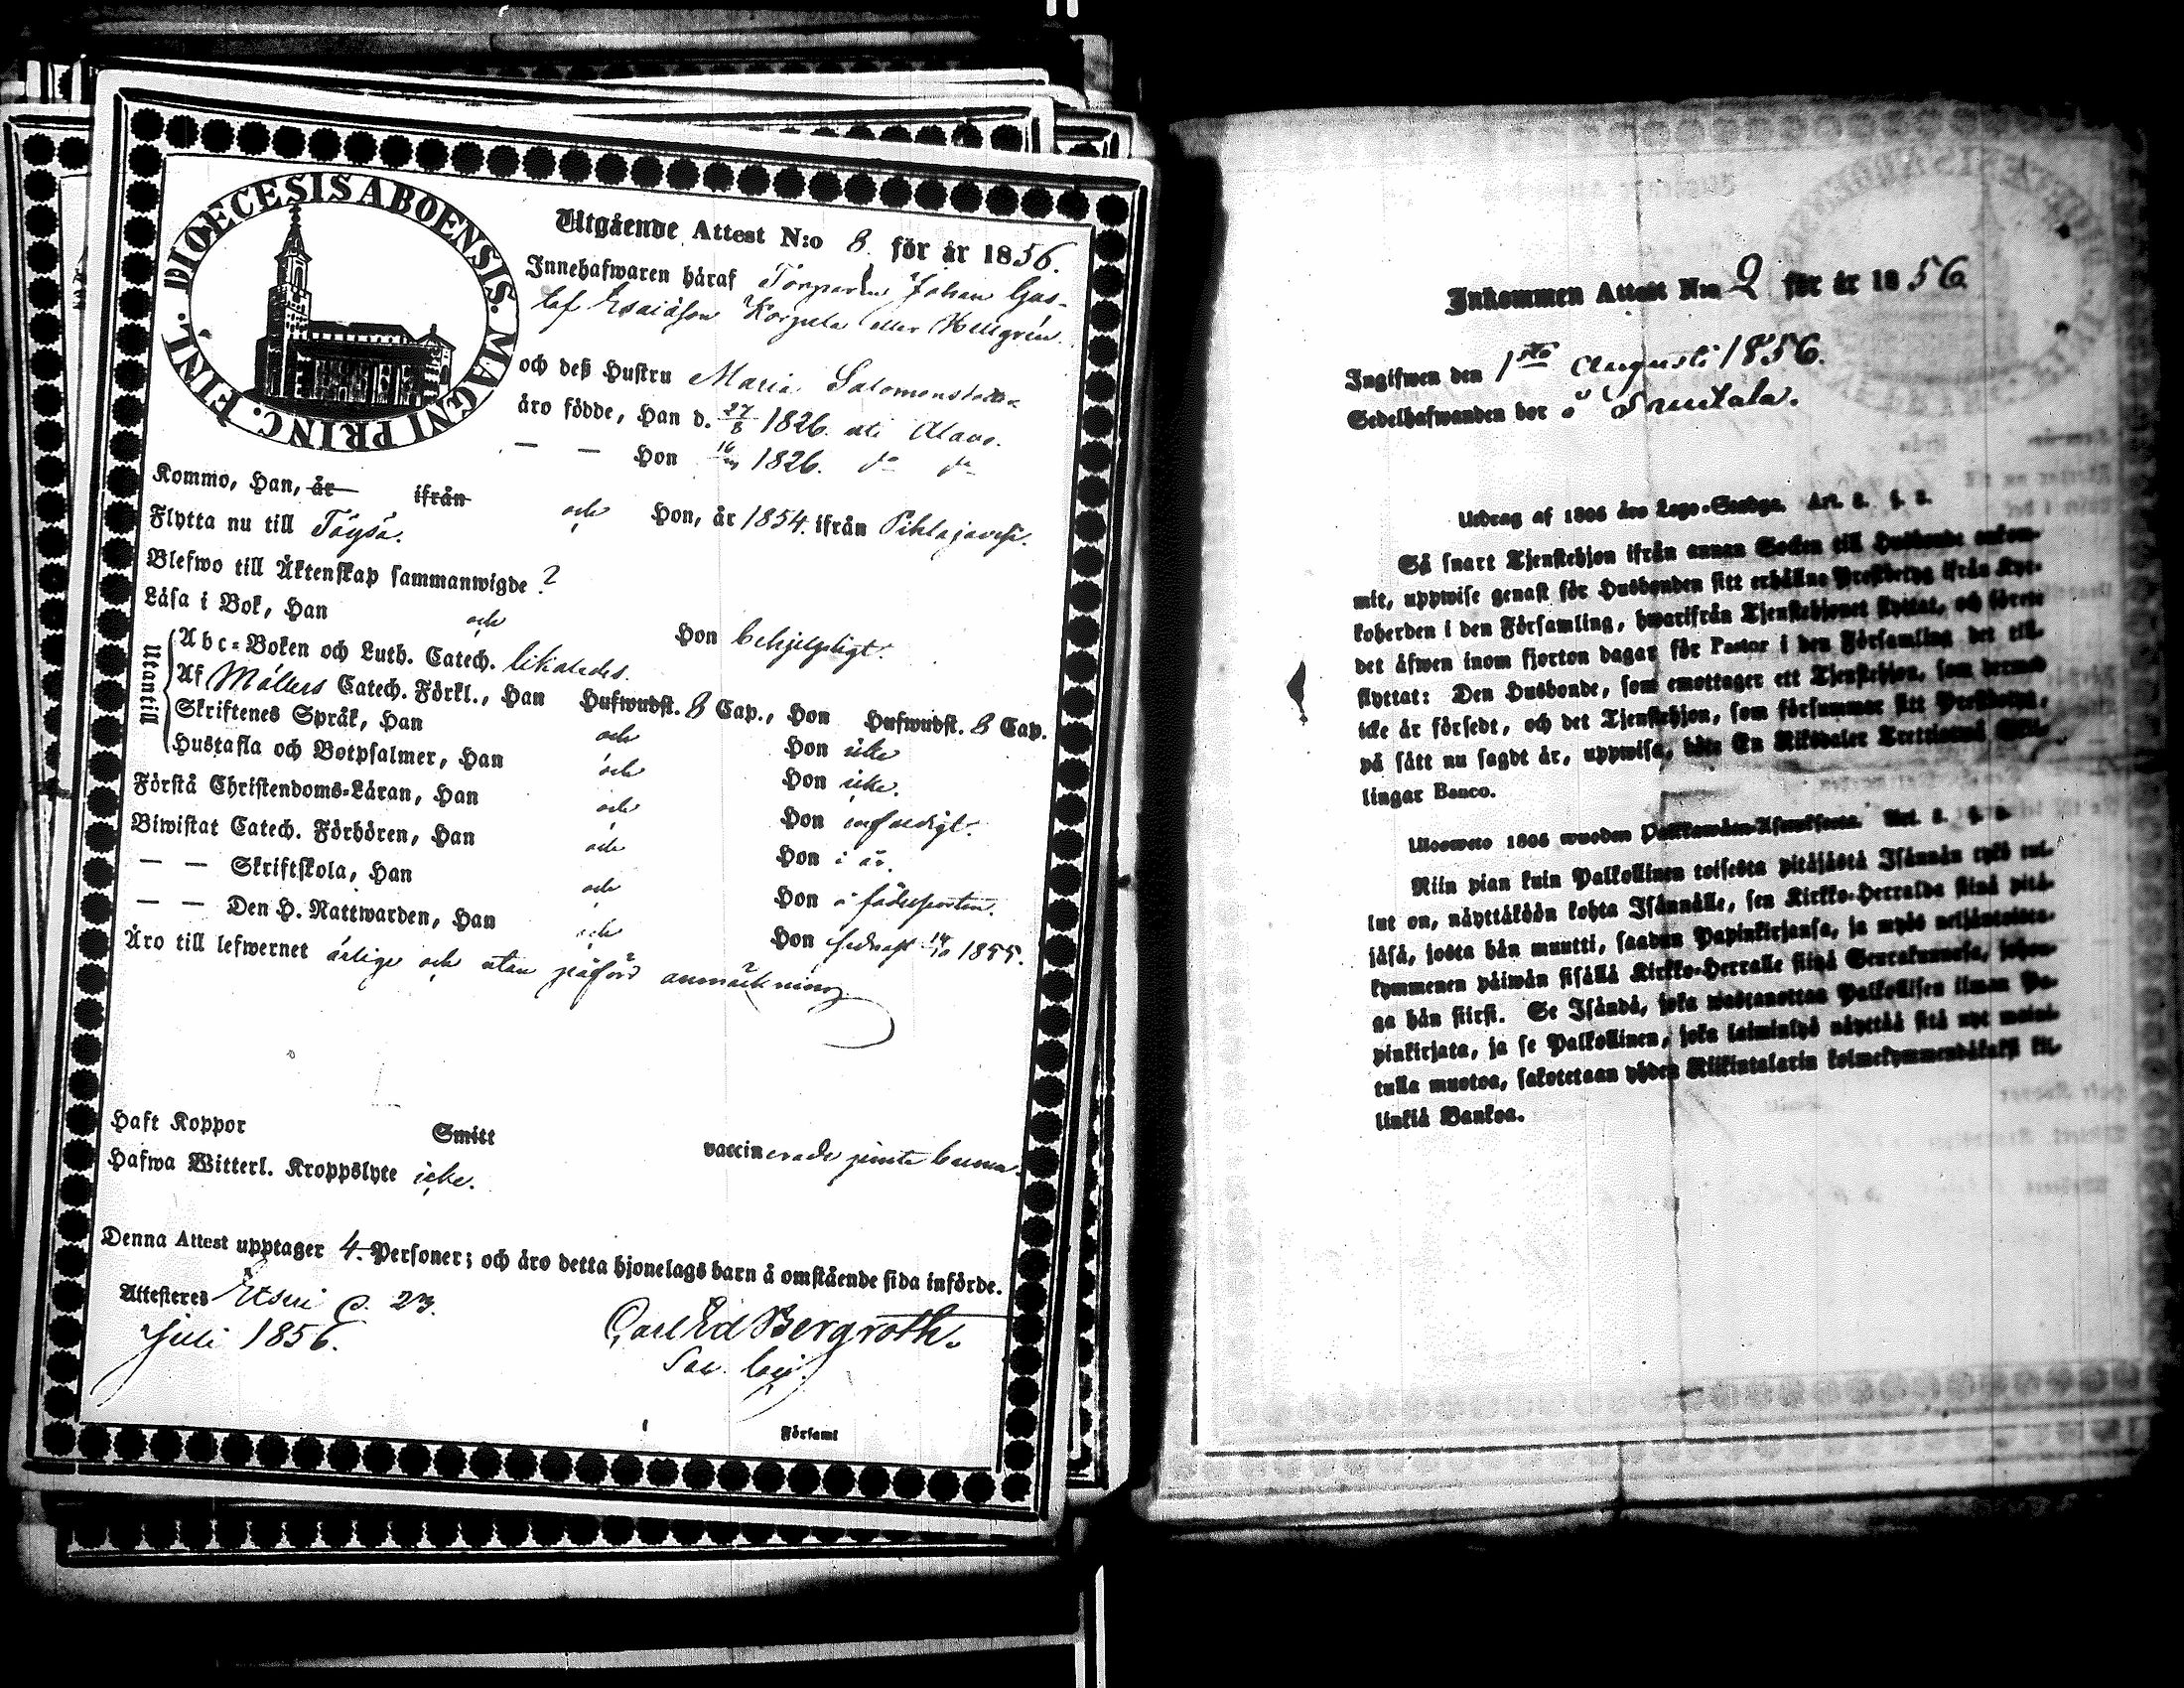 DIOECESIS ABOENSIS. MAGNI PRINC. FINL.
Utgående Attest N:o 8. för år 1856.
Innehafwaren häraf Torparen Johan Gus-
taf Esaiason Korpela eller Hellgrén.
och deß Hustru Maria Salomonsdotter
äro födde, Han d. 27/8 1826. uti Alavo.
— — Hon 16/ 1826. do do
Kommo, Han, är ifrån och Hon, år 1854. ifrån Pihlajavesi.
Flytta nu till Töysä.
Blefwo till Äktenskap sammanwigde ?
Läsa i Bok, Han och Hon behjelpligt.
Utantill
Abc-Boken och Luth. Catech. likaledes.
Af Möllers Catech. Förkl., Han Hufwudst. 8 Cap., Hon Hufwudst. 8 Cap.
Skriftenes Språk, Han och Hon icke
Hustafla och Botpsalmer, Han och Hon icke.
Förstå Christendoms-Läran, Han och Hon enfaldigt.
Biwistat Catech. Förhören, Han och Hon i år.
— — Skriftskola, Han och Hon å födelseorten.
— — Den H. Nattwarden, Han och Hon sednast 14/10 1855.
Äro till lefwernet ärlige och utan påförd anmärkning
Haft Koppor Smitt vaccinerade jemte barnen.
Hafwa Witterl. Kroppslyte icke.
Denna Attest upptager 4. Personer; och äro detta hjonelags barn å omstående sida införde.
Attesteres Etseri d. 23.
Juli 1856.
Carl Ed Bergroth.
Sac. Cap.
Församl
Inkommen Attest N:o 9 för år 1856
Ingifwen den 1sta Augusti 1856.
Sedelhafwanden bor å
Utdrag af 1805 års Lego-Stadga. Art. 2. §. 2.
Så snart Tjenstehjon ifrån annan Socken till Husbonde ankom-
mit, uppwise genast för Husbonden sitt erhållne Prestbetyg ifrån Kyr-
koherden i den Församling, hwarifrån Tjenstehjonet flyttat, och förete
det äfwen inom fjorton dagar för Pastor i den Församling det till-
flyttat: Den Husbonde, som emottager ett Tjenstehjon, som dermed
icke är försedt, och det Tjenstehjon, som försummar sitt Prestbetyg,
på sätt nu sagdt är, uppwisa, böte En Riksdaler Trettiotwå Skil-
lingar Banco.
Ulosweto 1805 wuoden Palkkawäen-Asetuksesta. Art. 2. §. 2.
Niin pian kuin Palkollinen toisesta pitäjästä Isännän tykö tul-
lut on, näyttäköön kohta Isännälle, sen Kirkko-Herralda siinä pitä-
jäsä, josta hän muutti, saadun Papinkirjansa, ja myös neljäntoista-
kymmenen päiwän sisällä Kirkko-Herralle siinä Seurakunnasa, johon-
ga hän siirsi. Se Isändä, joka wastanottaa Palkollisen ilman Pa-
pinkirjata, ja se Palkollinen, joka laiminlyö näyttää sitä nyt maini-
tulla muotoa, sakotetaan yhden Riikintalarin kolmekymmendäkaksi kil-
linkiä Bankoa.